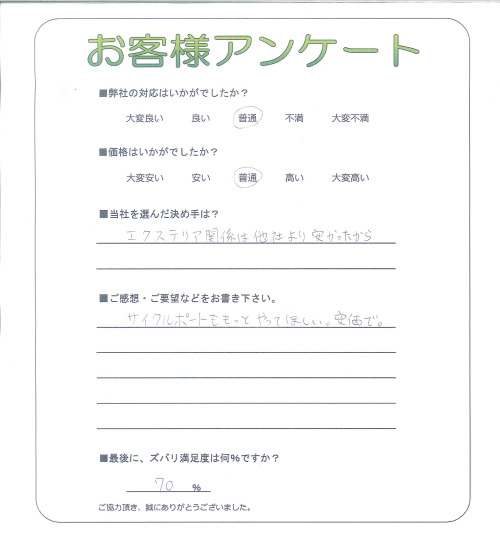 お客様アンケート
■弊社の対応はいかがでしたか？
大変良い 良い 普通 不満 大変不満
■価格はいかがでしたか？
大変安い 安い 普通 高い 大変高い
■当社を選んだ決め手は？
エクステリア関係は他社より安かったから
■ご感想・ご要望などをお書き下さい。
サイクルポートももっとやってほしい。安価で。
■最後に、ズバリ満足度は何%ですか？
70 %
ご協力頂き、誠にありがとうございました。